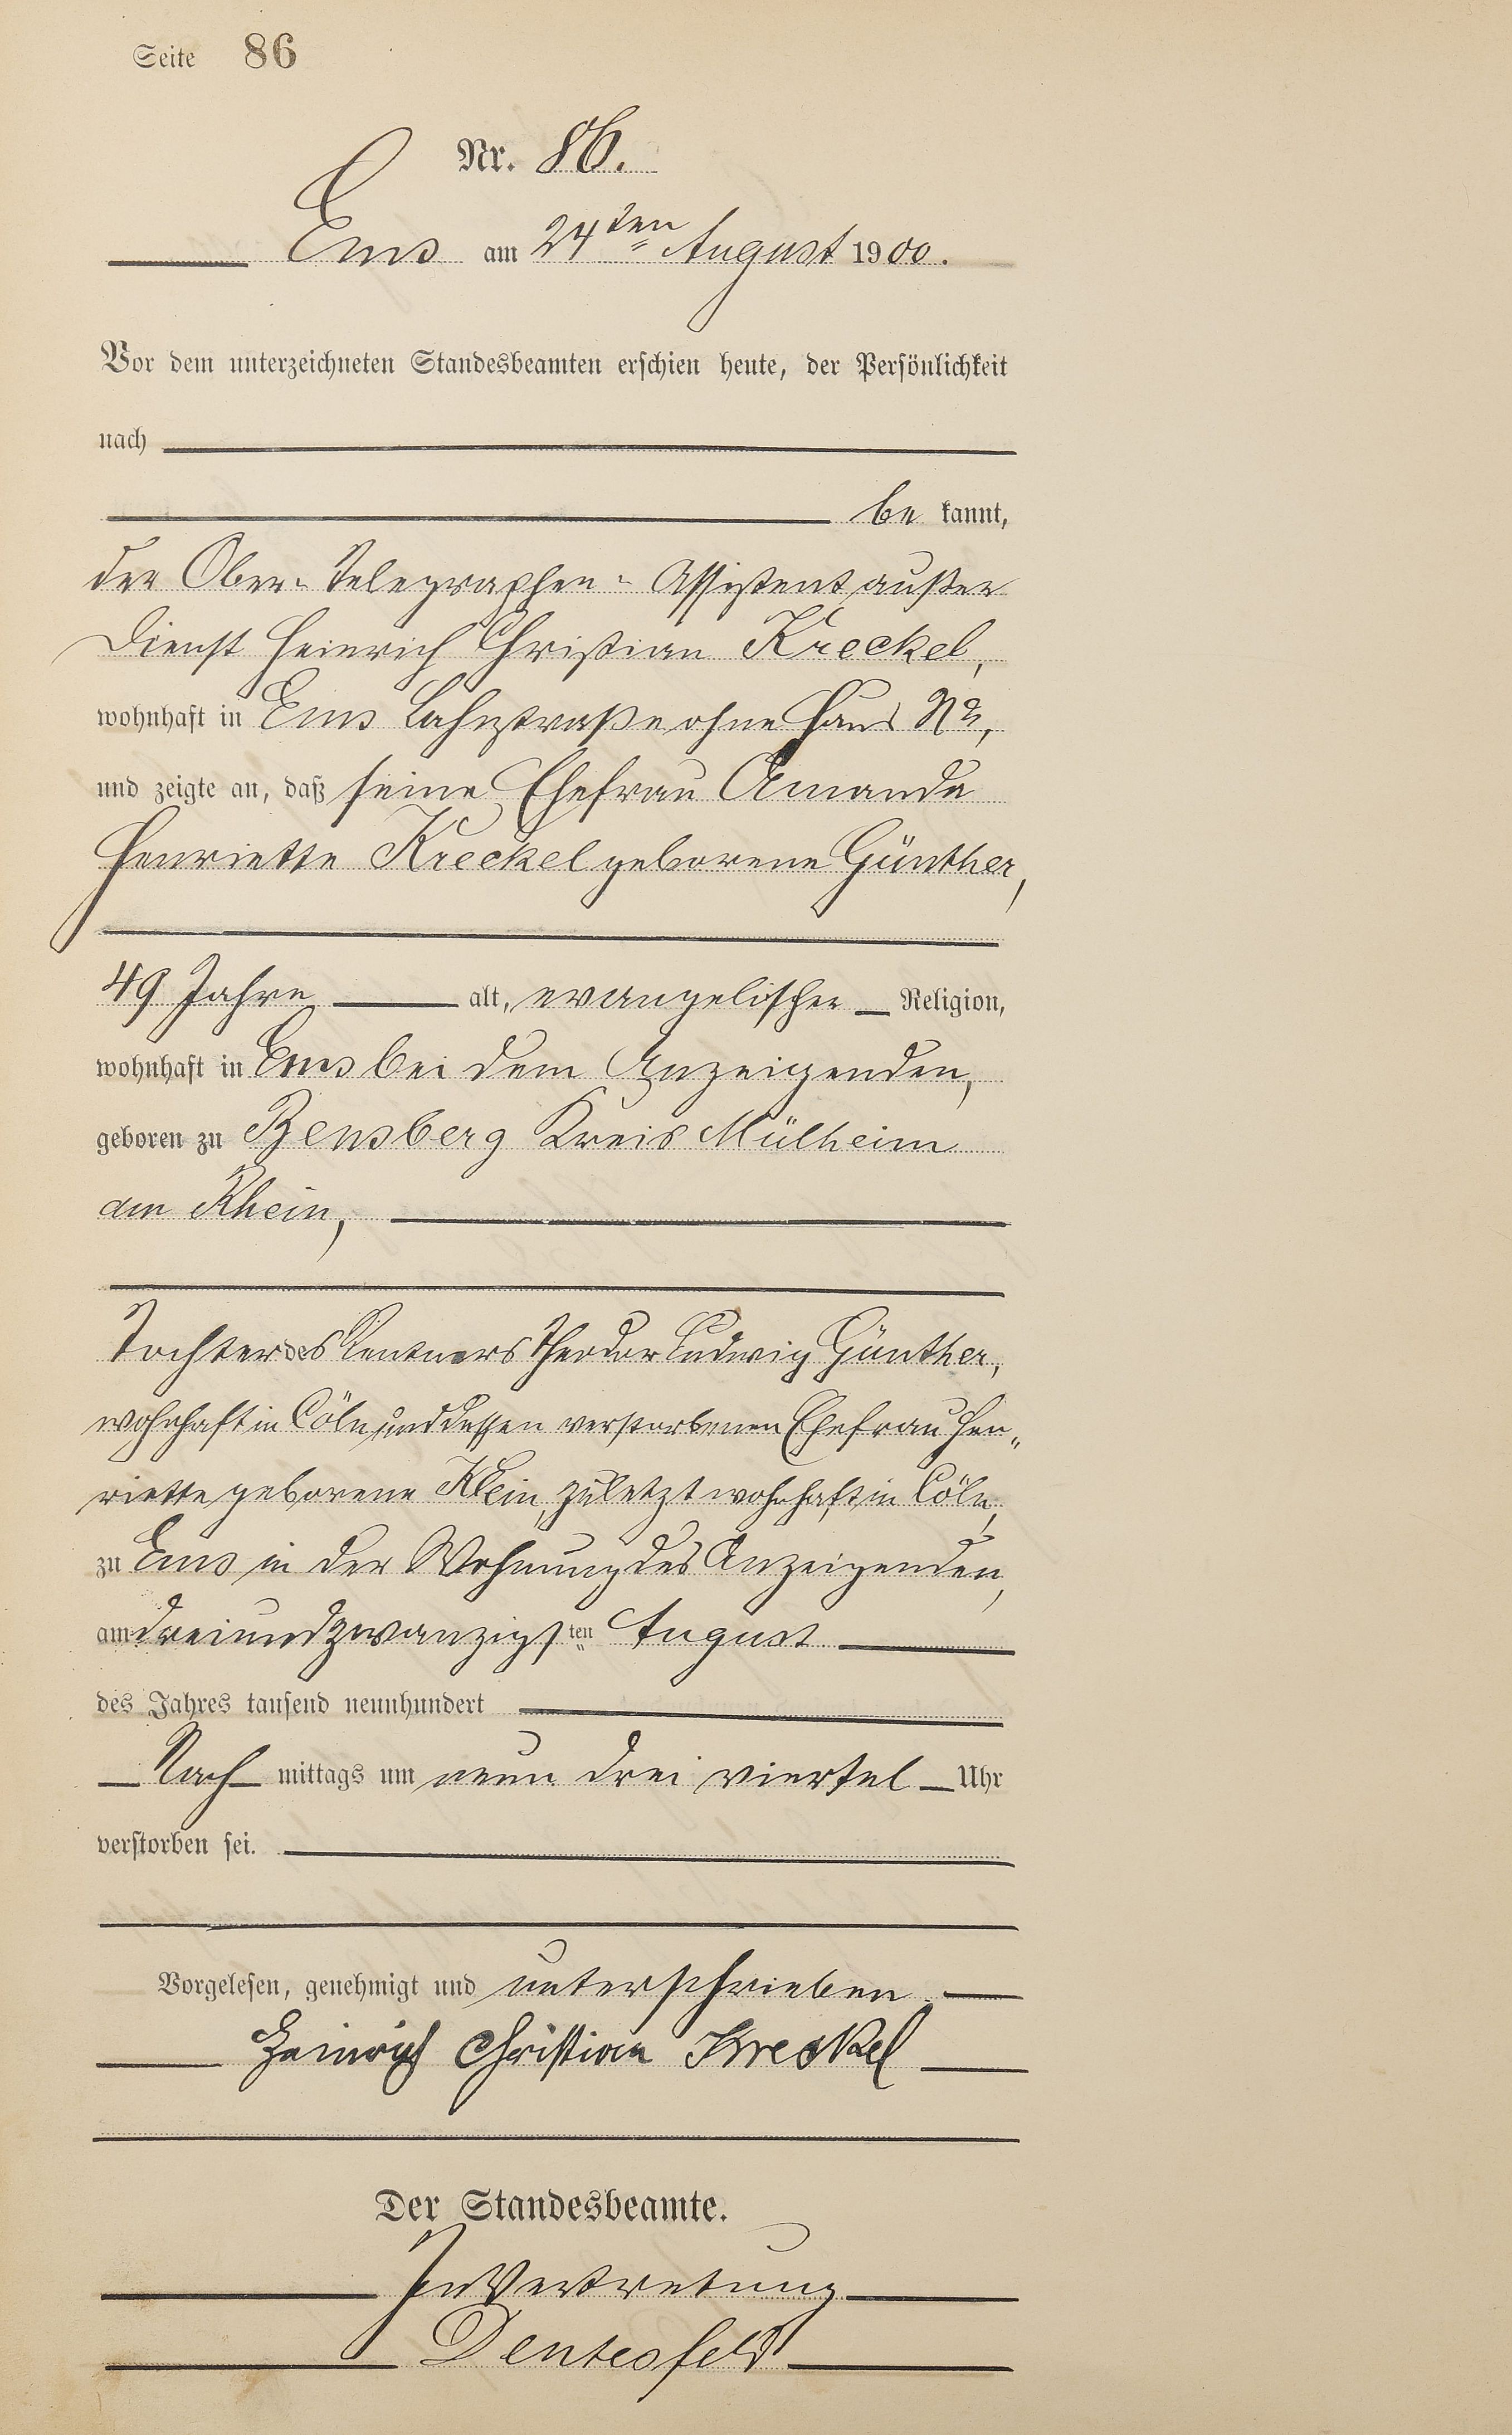 Seite 86
Nr. 86.
Ems am 24ten August 1900.
Vor dem unterzeichneten Standesbeamten erschien heute, der Persönlichkeit
nach
be kannt,
der Ober-Telegraphen-Assistent außer
Dienst Heinrich Christian Kreckel,
wohnhaft in Ems Lahnstraße ohne Haus No,
und zeigte an, daß seine Ehefrau Amanda
Henriette Kreckel geborene Günther,
49 Jahre alt, evangelischer Religion,
wohnhaft in Ems bei dem Anzeigenden,
geboren zu Bensberg Kreis Mülheim
am Rhein,
Tochter des Rentners Theodor Ludwig Günther,
wohnhaft in Cöln, und dessen verstorbenen Ehefrau Hen„
riette geborene Klein, zuletzt wohnhaft in Cöln,
zu Ems in der Wohnung des Anzeigenden,
am dreiundzwanzigsten August
des Jahres tausend neunhundert
Nach mittags um neun drei viertel Uhr
verstorben sei.
Vorgelesen, genehmigt und unterschrieben.
Heinrich Christian Kreckel
Der Standesbeamte.
In Vertretung